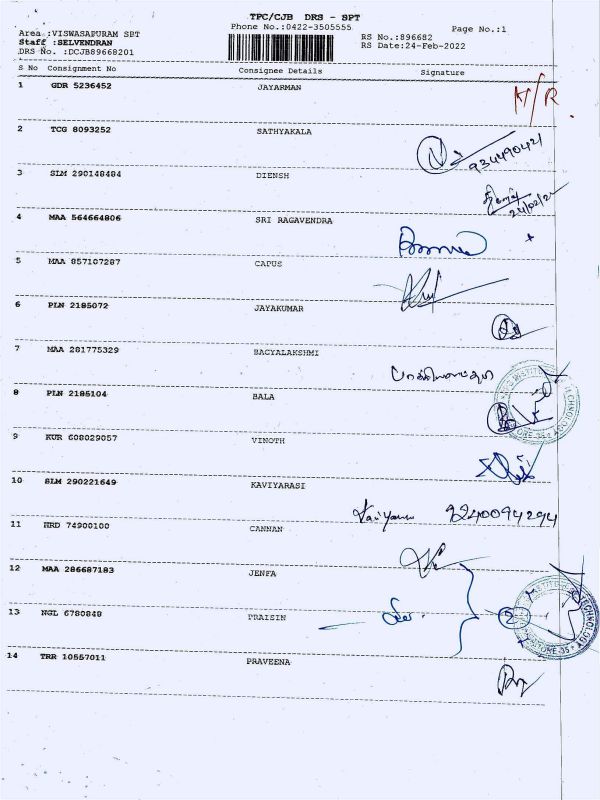 TPC/CJB DRS - SPT
Phone No.:0422-3505555 Page No.:1
Area :VISWASAPURAM SPT
Staff :SELVENDRAN RS No.:896682
DRS No. :DCJB89668201 RS Date:24-Feb-2022
S No Consignment No Consignee Details Signature
1 GDR 5236452 JAYARMAN
N/R
2 TCG 8093252 SATHYAKALA
934490421
3 SLM 290148484 DIENSH
24/02/22
4 MAA 564664806 SRI RAGAVENDRA
5 MAA 857107287 CAPUS
6 PLN 2185072 JAYAKUMAR
7 MAA 281775329 BAGYALAKSHMI
8 PLN 2185104 BALA
9 KUR 608029057 VINOTH
10 SLM 290221649 KAVIYARASI
9240094294
11 HRD 74900100 CANNAN
12 MAA 286687183 JENFA
13 NGL 6780848 PRAISIN
2
14 TRR 10557011 PRAVEENA